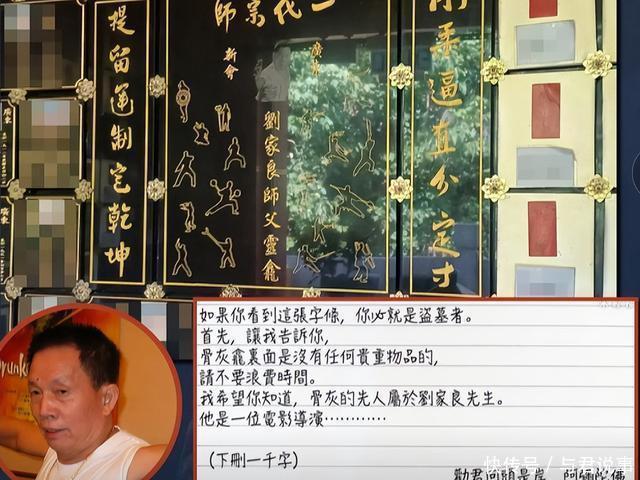 一代宗師
剛柔逼直分定寸
提留運制定乾坤
廣東
新會
劉家良師父靈龕
廣東
廣東
Drunk
如果你看到這張字條，你必就是盜墓者。
首先，讓我告訴你，
骨灰龕裏面是沒有任何貴重物品的，
請不要浪費時間。
我希望你知道，骨灰的先人屬於劉家良先生。
他是一位電影導演…………
（下刪一千字）
勸君回頭是岸 阿彌陀佛
快传号／与君说事